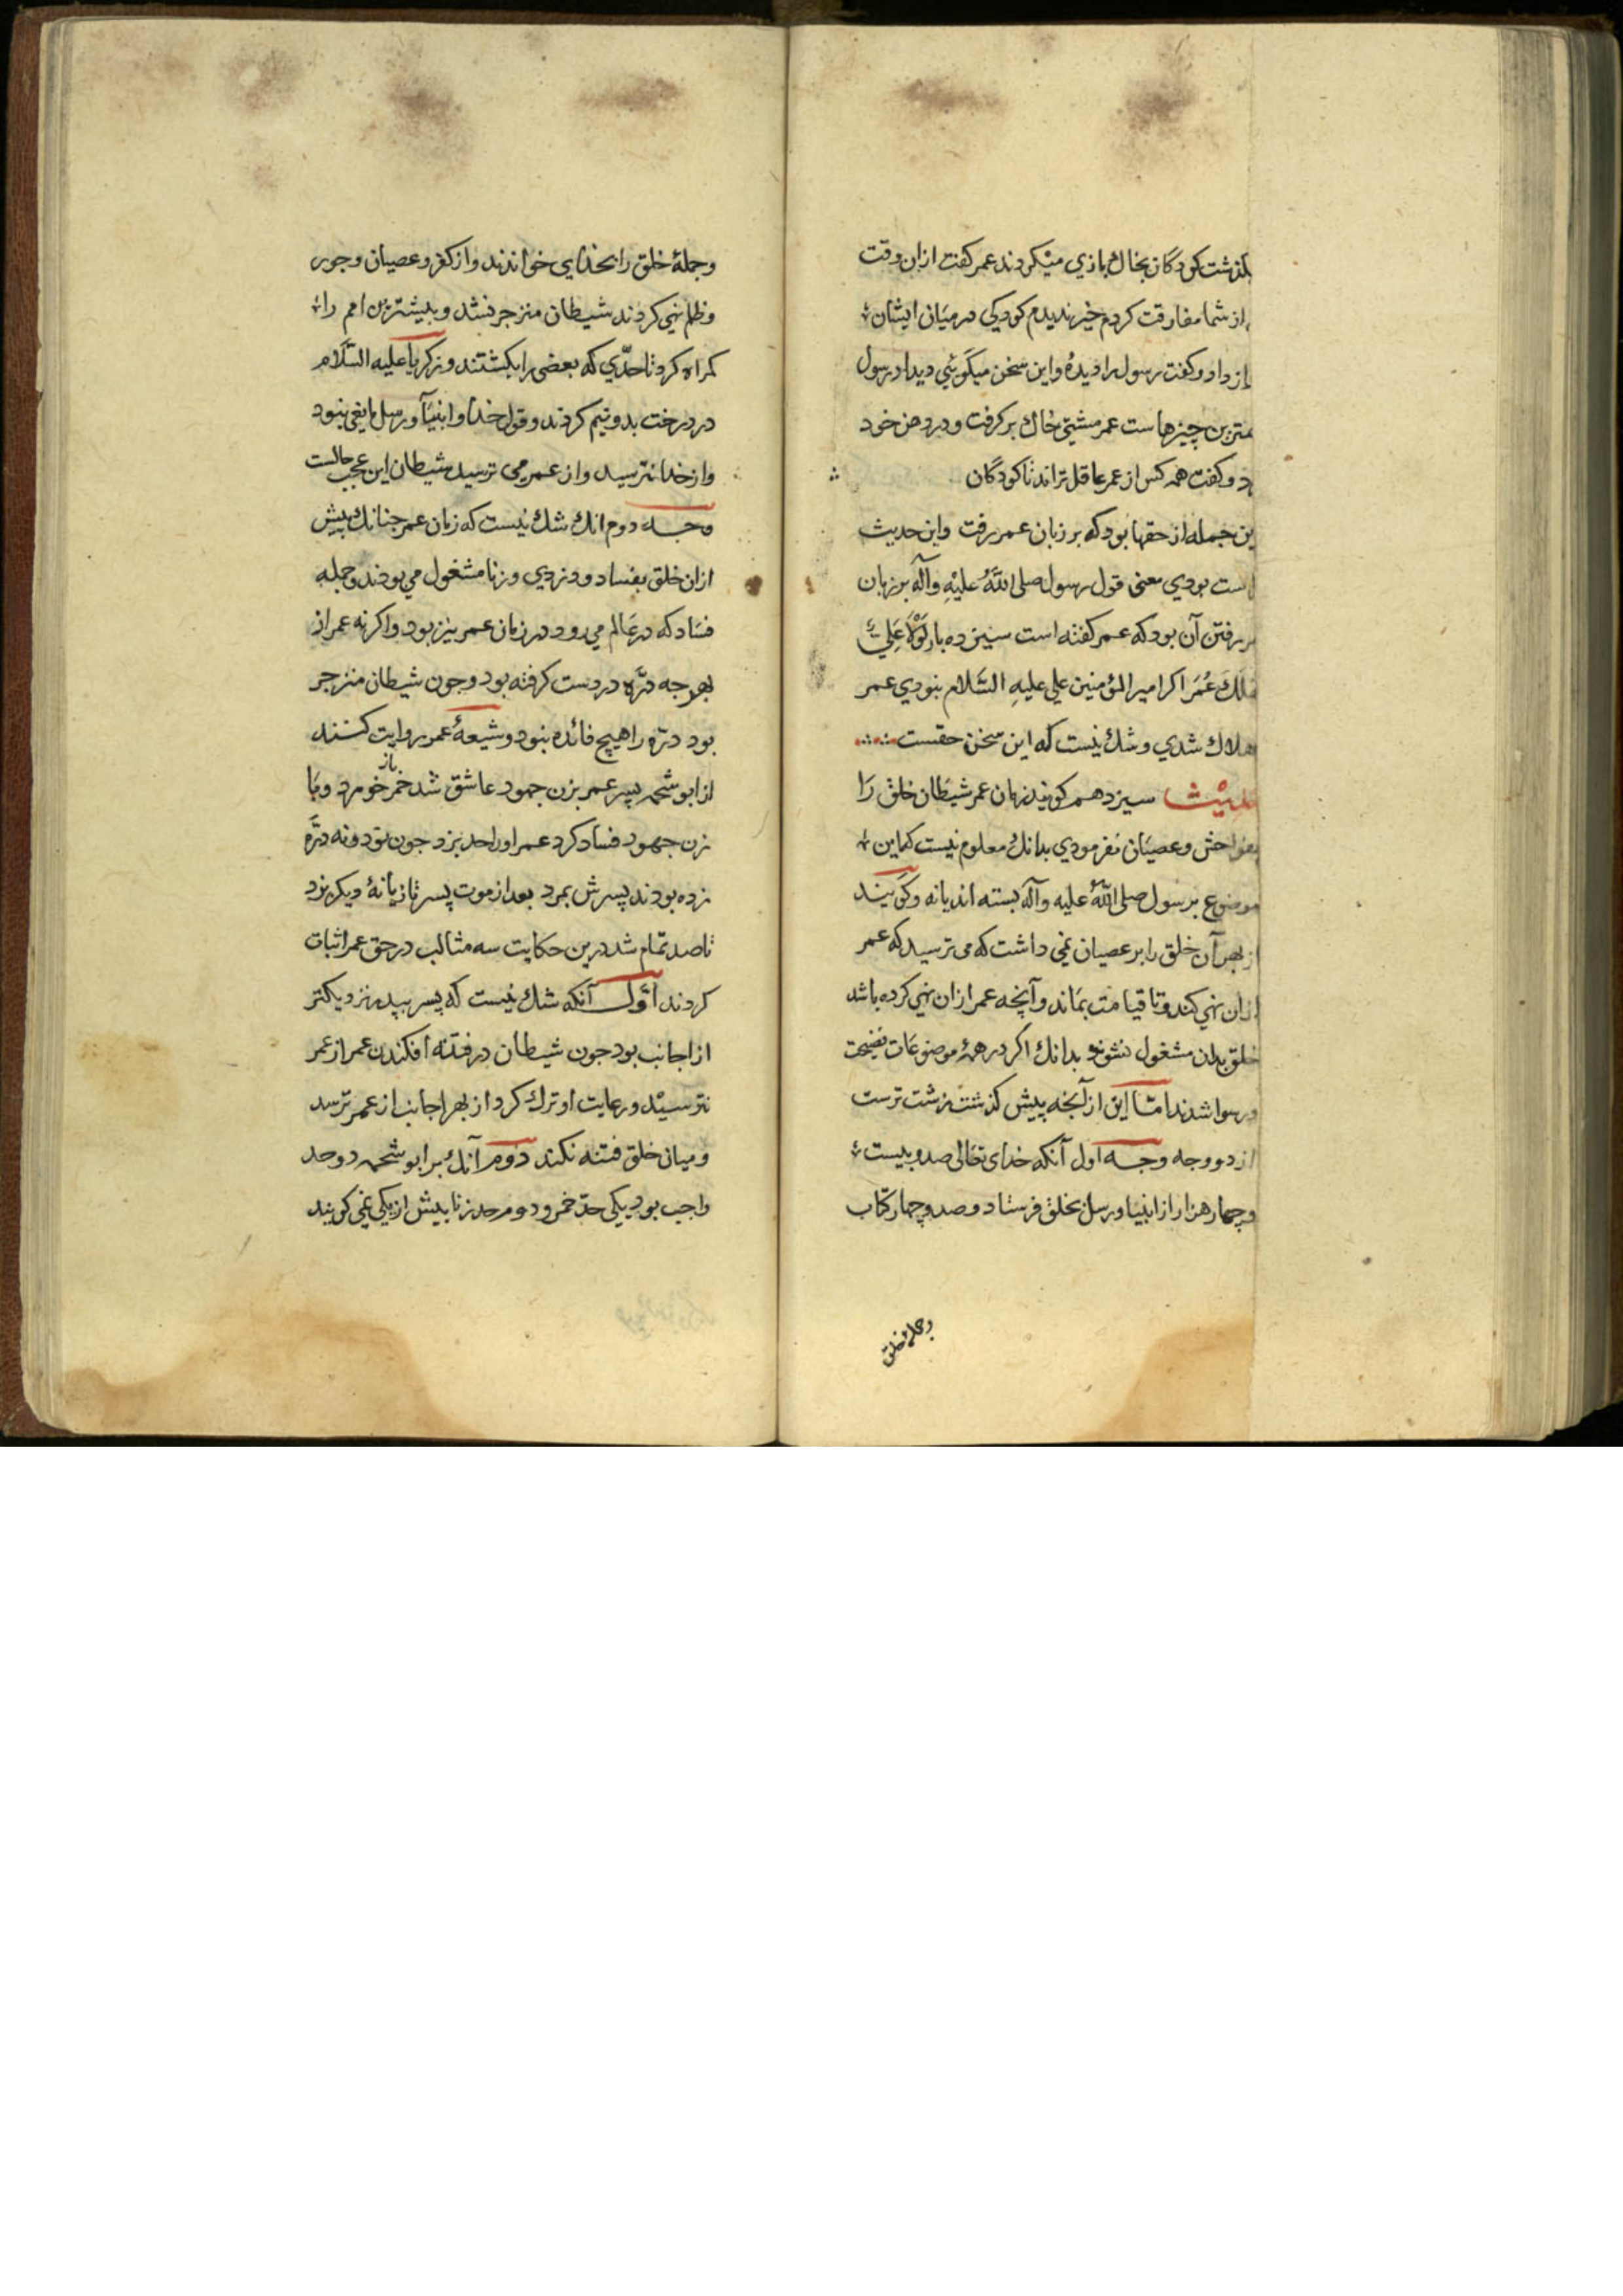 بگذشت کودکان بخاك بازی میکردند عمر کفت ازان وقت
از شما مفارقت کردم خیر ندیدم کودکی در میان ایشان
باز داد و کفت رسول را دیدهٔ و این سخن میکوئی دیدار رسول
چیزهاست عمر مشتی خاك بر کرفت و در دهن خود
و کفت همه کس از عمر عاقل تراند تا کودکان
این جمله از حقها بود که بر زبان عمر رفت و این حدیث
است بودی معنی قول رسول صلی اللّٰه علیهِ وآله بر زبان
رفتن آن بود که عمر کفته است سیزده بار لَوْلَا عَلِیٌّ
لَهَلَكَ عُمَر اکر امیر المؤمنین علی علیهِ السَّلام نبودی عمر
هلاك شدی و شك نیست که این سخن حقست
حدیث سیزدهم کویند زمان عمر شیطان خلق را
بفواحش و عصیان نفرمودی بدانك معلوم نیست که این
موضوع بر رسول صلی اللّٰه علیه وآله بسته اند یا نه و کویند
از بهر آن خلق را بر عصیان نمی داشت که می ترسید که عمر
ازان نهی کند و تا قیامت بماند و آنچه عمر ازان نهی کرده باشد
خلق بدان مشغول نشوند بدانك اکر در همهٔ موضوعات فضیحت
و رسوا شدند امّا این از آنچه پیش کذشت زشت ترست
از دو وجه وجه اول آنکه خدای تعالی صد و بیست
و چهار هزار از انبیا و رسل بخلق فرستاد و صد و چهار کتاب
و جملهٔ خلق
و جملهٔ خلق را بخدایی خواندند و از کفر و عصیان و جور
و ظلم نهی کردند شیطان منزجر نشد و بیشترین امم را
کمراه کرد تا حدّی که بعضی را بکشتند و زکریا علیه السَّلام
در درخت بدو نیم کردند و قول خدا و انبیا و رسل مانعی نبود
و از خدا نترسید و از عمر می ترسید شیطان این عجب حالست
وجه دوم انك شك نیست که زمان عمر جنانك پیش
ازان خلق بفساد و دزدی و زنا مشغول می بودند و جمله
فساد که در عالم می رود در زمان عمر نیز بود و اکر نه عمر از
بهر جه درّه در دست کرفته بود و جون شیطان منزجر
بود درّه را هیچ فائده نبود و شیعهٔ عمر روایت کنند
از ابو شحمه پسر عمر بزن جهود عاشق شد خمر باز خورد و با
زن جهود فساد کرد عمر اورا حد بزد جون نود و نه درّه
زده بودند پسرش بمرد بعد از موت پسر تازیانهٔ دیکر بزد
تا صد تمام شد درین حکایت سه مثالب در حق عمر اثبات
کردند اوّل آنکه شك نیست که پسر بپدر نزدیکتر
از اجانب بود جون شیطان در فتنه افکندن عمر از عمر
نترسید و رعایت او ترك کرد از بهر اجانب از عمر ترسد
و میان خلق فتنه نکند دوم آنك بر ابو شحمه دو حد
واجب بود یکی حدّ خمر و دوم حد زنا بیش از یکی نمی کویند